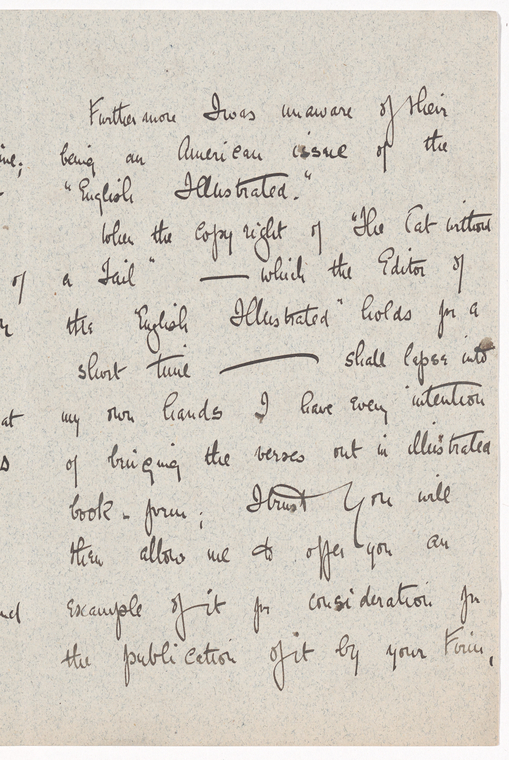 Furthermore I was unaware of their
being an American issue of the
"English Illustrated."
When the copyright of "The Cat without
a Tail" — which the Editor of
the English Illustrated" holds for a
short time — shall lapse into
my own hands I have every intention
of bringing the verses out in illustrated
book-form; I trust you will
then allow me to offer you an
example of it for consideration for
the publication of it by your Firm,
of
at